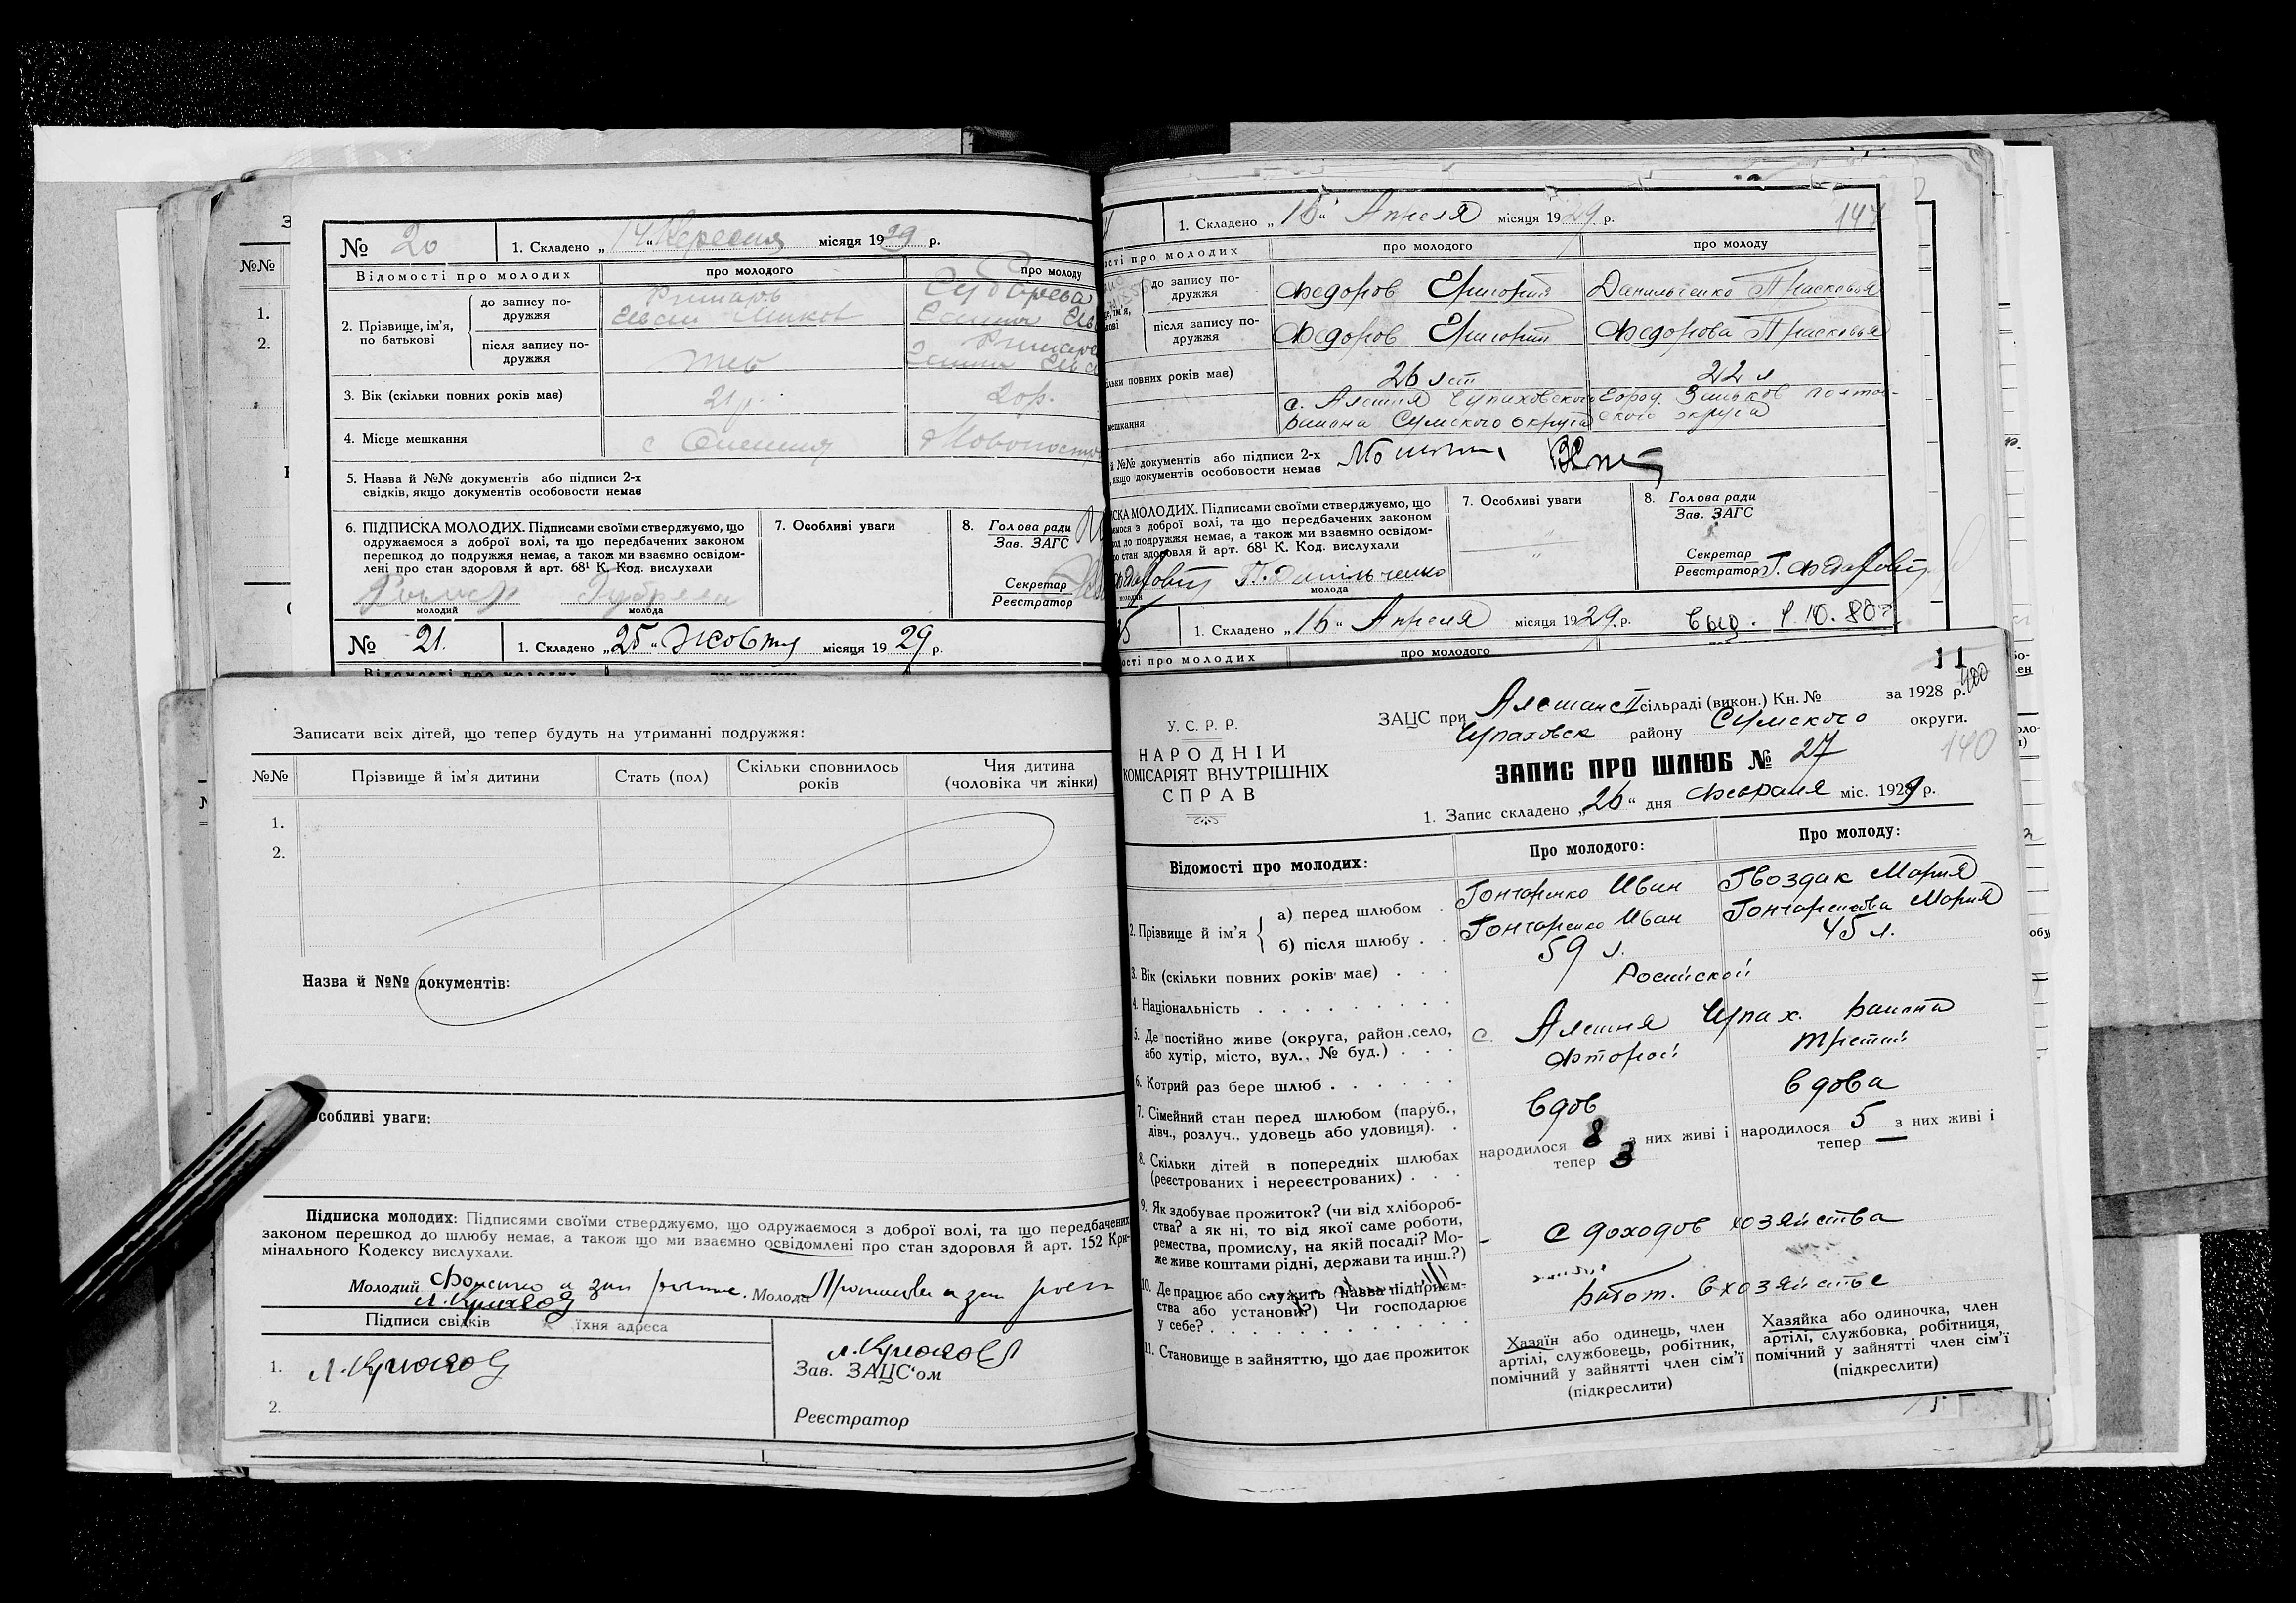 № 20 1. Складено „14“ Вересня місяця 1929 р.
Відомості про молодих про молодого про молоду
2. Прізвище, ім'я, по батькові
до запису по-
дружжя
після запису по-
дружжя
3. Вік (скільки повних років має) 21 р. 20 р.
4. Місце мешкання
5. Назва й №№ документів або підписи 2-х
свідків, якщо документів особовости немає
6. ПІДПИСКА МОЛОДИХ. Підписами своїми стверджуємо, що
одружаємося з доброї волі, та що передбачених законом
перешкод до подружжя немає, а також ми взаємно освідом-
лені про стан здоровля й арт. 68¹ К. Код. вислухали
молодий молода
7. Особливі уваги
8. Голова ради
Зав. ЗАГС
Секретар
Реєстратор
№ 21. 1. Складено „25“ Жовтня місяця 1929 р.
Записати всіх дітей, що тепер будуть на утриманні подружжя:
№№ Прізвище й ім'я дитини Стать (пол) Скільки сповнилось
років Чия дитина
(чоловіка чи жінки)
1.
2.
Назва й №№ документів:
Особливі уваги:
Підписка молодих: Підписями своїми стверджуємо, що одружаємося з доброї волі, та що передбачених
законом перешкод до шлюбу немає, а також що ми взаємно освідомлені про стан здоровля й арт. 152 Кри-
мінального Кодексу вислухали.
Молодий Молода
Підписи свідків їхня адреса
1.
2.
Зав. ЗАЦС'ом
Реєстратор
1. Складено „16“ Апреля місяця 1929 р. 147
ості про молодих про молодого про молоду
до запису по-
дружжя Федоров Григорий Данильченко Прасковья
після запису по-
дружжя Федоров Григорий Федорова Прасковья
ільки повних років має) 26 лет 22 л
мешкання с. Алешня Чупаховского Город Зиньков Полтав-
района Сумского округа ского округа
й №№ документів або підписи 2-х
, якщо документів особовости немає
ИСКА МОЛОДИХ. Підписами своїми стверджуємо, що
ємося з доброї волі, та що передбачених законом
од до подружжя немає, а також ми взаємно освідом-
о стан здоровля й арт. 68¹ К. Код. вислухали
П. Данільченко
молода
7. Особливі уваги
8. Голова ради
Зав. ЗАГС
Секретар
Реєстратор
25 1. Складено „16“ Апреля місяця 1929 р.
ості про молодих про молодого
11
У. С. Р. Р.
НАРОДНІЙ
КОМІСАРІЯТ ВНУТРІШНІХ
СПРАВ
ЗАЦС при Алешанс II сільраді (викон.) Кн. № за 1928 р.
Чупаховск району Сумского округи.
140
ЗАПИС ПРО ШЛЮБ № 27
1. Запис складено „26“ дня Февраля міс. 1929 р.
Відомості про молодих: Про молодого: Про молоду:
2. Прізвище й ім'я
а) перед шлюбом Гончаренко Иван Гвоздик Мария
б) після шлюбу Гончаренко Иван Гончаренкова Мария
3. Вік (скільки повних років має) 59 л. 45 л.
4. Національність Росийской
5. Де постійно живе (округа, район, село,
або хутір, місто, вул., № буд.) с. Алешня Чупах. района
6. Котрий раз бере шлюб Фторой Третий
7. Сімейний стан перед шлюбом (паруб.,
дівч., розлуч., удовець або удовиця). Вдов Вдова
8. Скільки дітей в попередніх шлюбах
(реєстрованих і нереєстрованих)
народилося 8 з них живі і
тепер 3
народилося 5 з них живі і
тепер —
9. Як здобуває прожиток? (чи від хлібороб-
ства? а як ні, то від якої саме роботи,
ремества, промислу, на якій посаді? Мо-
же живе коштами рідні, держави та инш.?)
С доходов хозяйства
10. Де працює або служить (назва підприєм-
ства або установи?) Чи господарює
у себе?
Работ. в хозяйстве
11. Становище в зайняттю, що дає прожиток
Хазяїн або одинець, член
артілі, службовець, робітник,
помічний у зайнятті член сім'ї
(підкреслити)
Хазяйка або одиночка, член
артілі, службовка, робітниця,
помічний у зайнятті член сім'ї
(підкреслити)